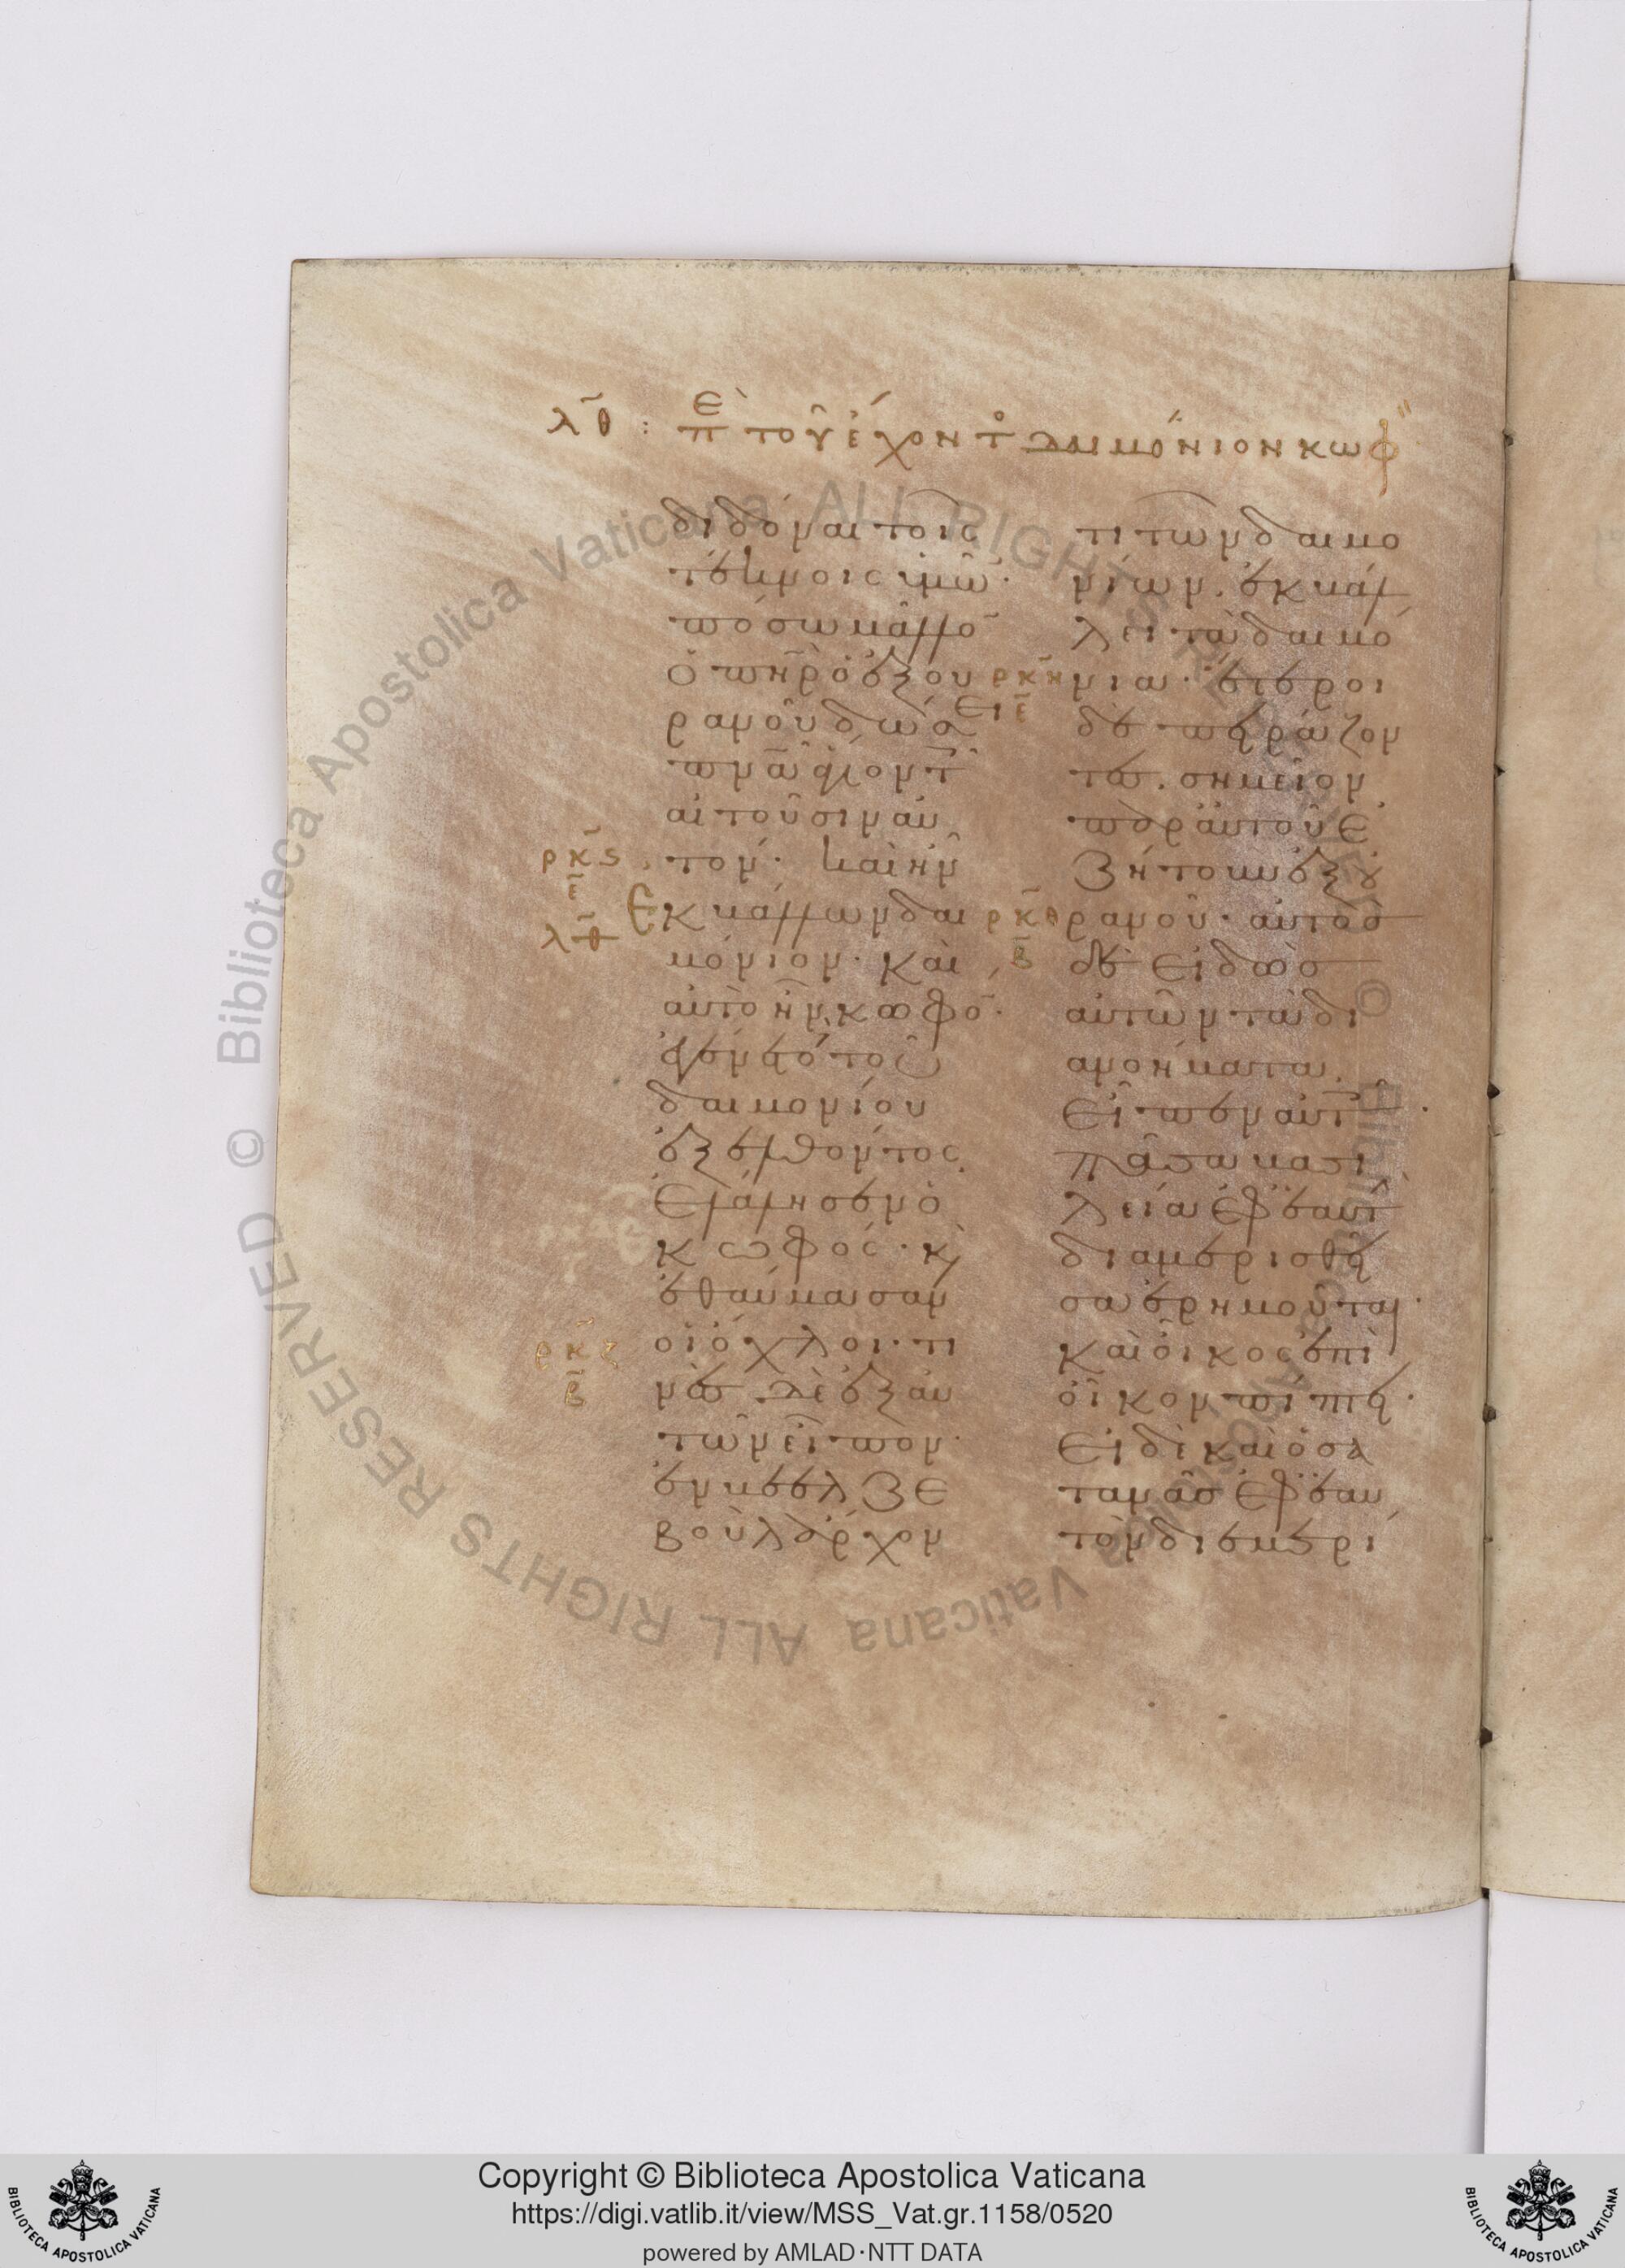 λ̃θ : Πε τοῦ ἔχοντο δαιμόνιον κωφ
διδόναι τοῖς
τέκνοις ὑμῶ̅·
πόσω μᾶλλο̅
ὁ πη̅ρ ὁ ἐξ ου
ρανοῦ δώσει
πν̅α ἅγιον τ
αἰτοῦσιν αὐ
ρκ̃ς
ε̃
τόν· Καὶ ἦν
λ̃θ
ἐκβάλλων δαι
μόνιον· καὶ
αὐτὸ ἦν κωφό̅·
ἐγένετο τοῦ
δαιμονίου
ἐξελθόντος
ἐλάλησεν ὁ
κωφός· κὶ
ἐθαύμασαν
ρκ̃ζ
β̃
οἱ ὄχλοι· τι
νὲς δὲ ἐξ αὐ
τῶν εἶπον·
ἐν βεελζε
βοὺλ ἄρχον
τι τῶν δαιμο
νίων. ἐκβάλ
λει τὰ δαιμό
ρκ̃η
ει ε̃
νια· ἕτεροι
δὲ πειράζον
τες. σημεῖον
παρ αὐτοῦ ἐ
ζήτουν ἐξ οὐ
ρκ̃θ
β̃
ρανοῦ· αὐτὸς
δὲ εἰδὼς
αὐτῶν τὰ δι
ανοήματα
εἶπεν αὐτ
πᾶσα βασι
λεία ἐφ ἑαυτ
διαμερισθεῖ
σα ἐρημοῦται·
καὶ οἶκος ἐπὶ
οἶκον πίπτει·
εἰ δὲ καὶ ὁ σα
τανᾶς ἐφ ἑαυ
τὸν διεμερί
Copyright © Biblioteca Apostolica Vaticana
https://digi.vatlib.it/view/MSS_Vat.gr.1158/0520
powered by AMLAD·NTT DATA
BIBLIOTECA APOSTOLICA VATICANA
BIBLIOTECA APOSTOLICA VATICANA
© Biblioteca Apostolica Vaticana ALL RIGHTS RESERVED
© Biblioteca Apostolica Vaticana ALL RIGHTS RESERVED